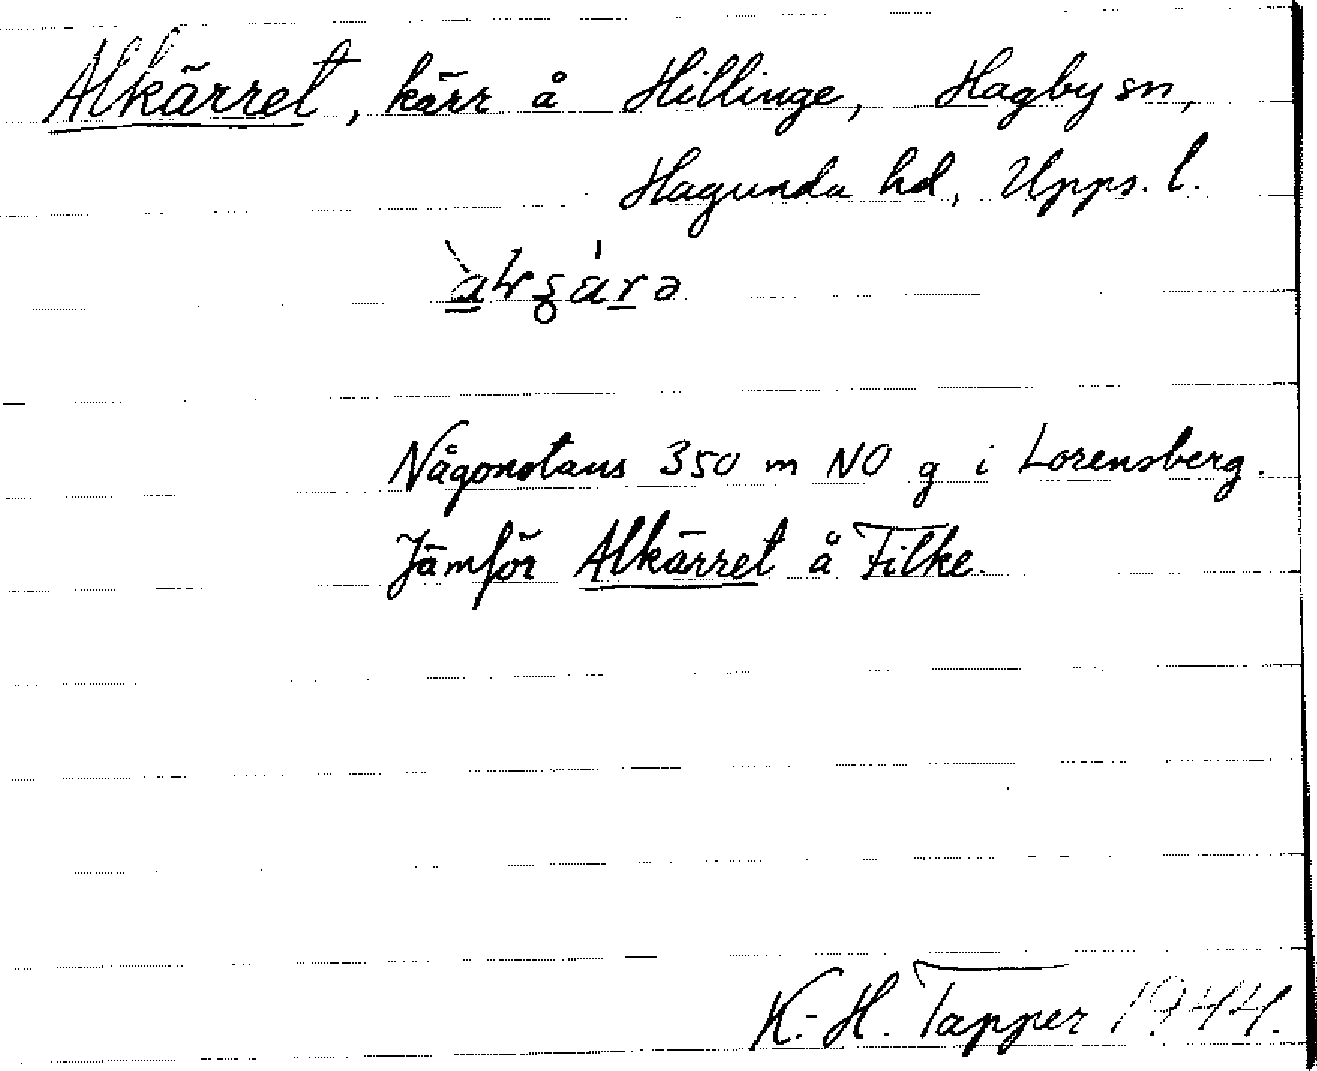 Alkärret, kärr å Hillinge, Hagby sn,
Hagunda hd, Upps. l.
Någonstans 350 m NO g i Lorensberg.
Jämför Alkärret å Filke.
K.-H. Tapper 1944.